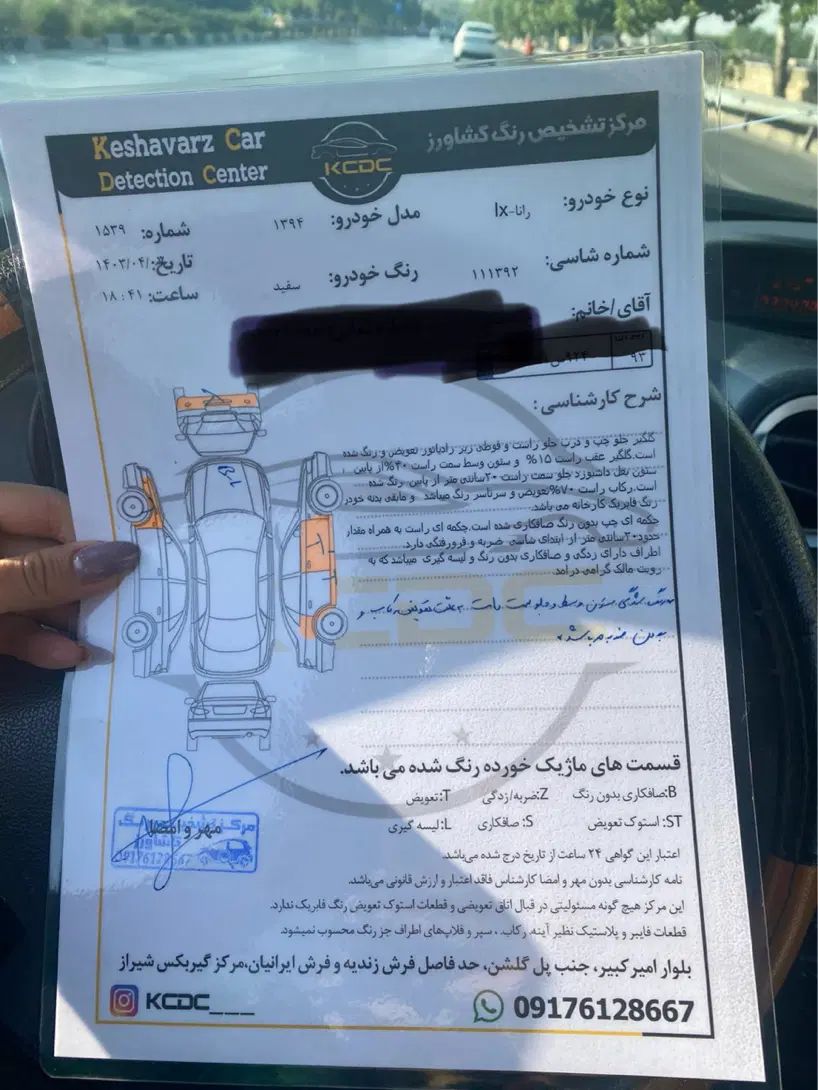 Keshavarz Car
Detection Center
KCDC
مرکز تشخیص رنگ کشاورز
نوع خودرو: رانا-lx
مدل خودرو: ۱۳۹۴
شماره: ۱۵۳۹
شماره شاسی: ۱۱۱۳۹۲
رنگ خودرو: سفید
تاریخ: ۱۴۰۳/۰۴/
ساعت: ۱۸:۴۱
آقای/خانم:
۹۳
شرح کارشناسی:
گلگیر جلو چپ و درب جلو راست و قوطی زیر رادیاتور تعویض و رنگ شده
است.گلگیر عقب راست ۱۵% و ستون وسط سمت راست ۴۰%از پایین ,
ستون بغل داشبورد جلو سمت راست ۲۰سانتی متر از پایین رنگ شده
است.رکاب راست ۷۰%تعویض و سرتاسر رنگ میباشد و مابقی بدنه خودر
رنگ فابریک کارخانه می باشد.
چکمه ای چپ بدون رنگ صافکاری شده است.چکمه ای راست به همراه مقدار
حدود۲۰سانتی متر از ابتدای شاسی ضربه و فرورفتگی دارد.
اطراف دارای زدگی و صافکاری بدون رنگ و لیسه گیری میباشد که به
رویت مالک گرامی درآمد.
ستون وسط و جلو سمت راست به علت تعویض رکاب و
B-L
T
قسمت های ماژیک خورده رنگ شده می باشد.
B:صافکاری بدون رنگ Z:ضربه/زدگی T:تعویض
ST: استوک تعویض S: صافکاری L:لیسه گیری
مهر و امضا
مرکز تشخیص رنگ
کشاورز
09176128667
اعتبار این گواهی ۲۴ ساعت از تاریخ درج شده می‌باشد.
نامه کارشناسی بدون مهر و امضا کارشناس فاقد اعتبار و ارزش قانونی می‌باشد.
این مرکز هیچ گونه مسئولیتی در قبال اتاق تعویضی و قطعات استوک تعویض رنگ فابریک ندارد.
قطعات فایبر و پلاستیک نظیر آینه، رکاب ، سپر و فلاپ‌های اطراف جز رنگ محسوب نمیشود.
بلوار امیرکبیر، جنب پل گلشن، حد فاصل فرش زندیه و فرش ایرانیان،مرکز گیربکس شیراز
KCDC___
09176128667